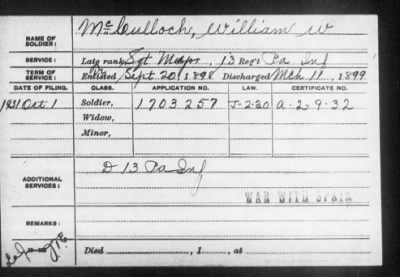 NAME OF SOLDIER: McCulloch, William W
SERVICE: Late rank, Sgt Major, 13 Reg't Pa Inf
TERM OF SERVICE: Enlisted Sept 20, 1898 Discharged Mch 11, 1899
DATE OF FILING. CLASS. APPLICATION NO. LAW. CERTIFICATE NO.
1921 Oct 1 Soldier, 1703257 J-2-20 A-2-9-32
Widow,
Minor,
ADDITIONAL SERVICES: D 13 Pa Inf
WAR WITH SPAIN
REMARKS:
Died , 1 , at